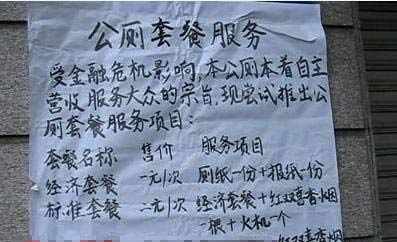 公厕套餐服务
受金融危机影响,本公厕本着自主
营收服务大众的宗旨,现尝试推出公
厕套餐服务项目:
套餐名称 售价 服务项目
经济套餐 一元/次 厕纸一份+报纸一份
标准套餐 二元/次 经济套餐+红双喜香烟
一根+火机一个
红双喜香烟